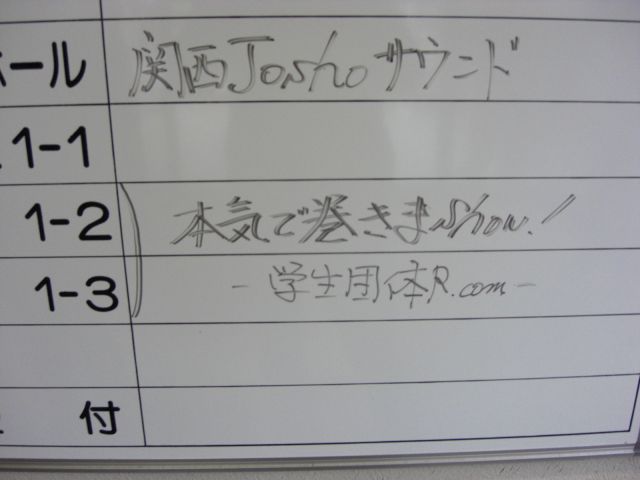 ホール 関西Joshoサウンド
1-1
1-2 本気で巻きまShow!
1-3 -学生団体R.com-
付